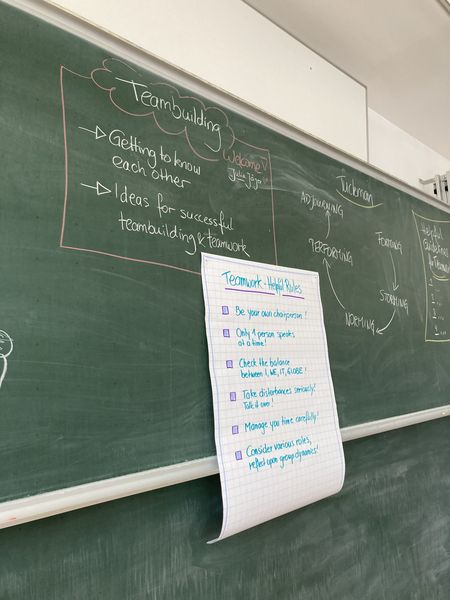 Teambuilding
Welcome
Getting to know
each other
Ideas for successful
teambuilding & teamwork
Tuckman
ADJOURNING
PERFORMING
FORMING
STORMING
NORMING
Helpful
Guidelines
1 ...
1 ...
1 ...
Teamwork - Helpful Rules
Be your own chairperson!
Only 1 person speaks
at a time!
Check the balance
between I, WE, IT, GLOBE!
Take disturbances seriously!
Talk it over!
Manage you time carefully!
Consider various roles,
reflect upon group dynamics!